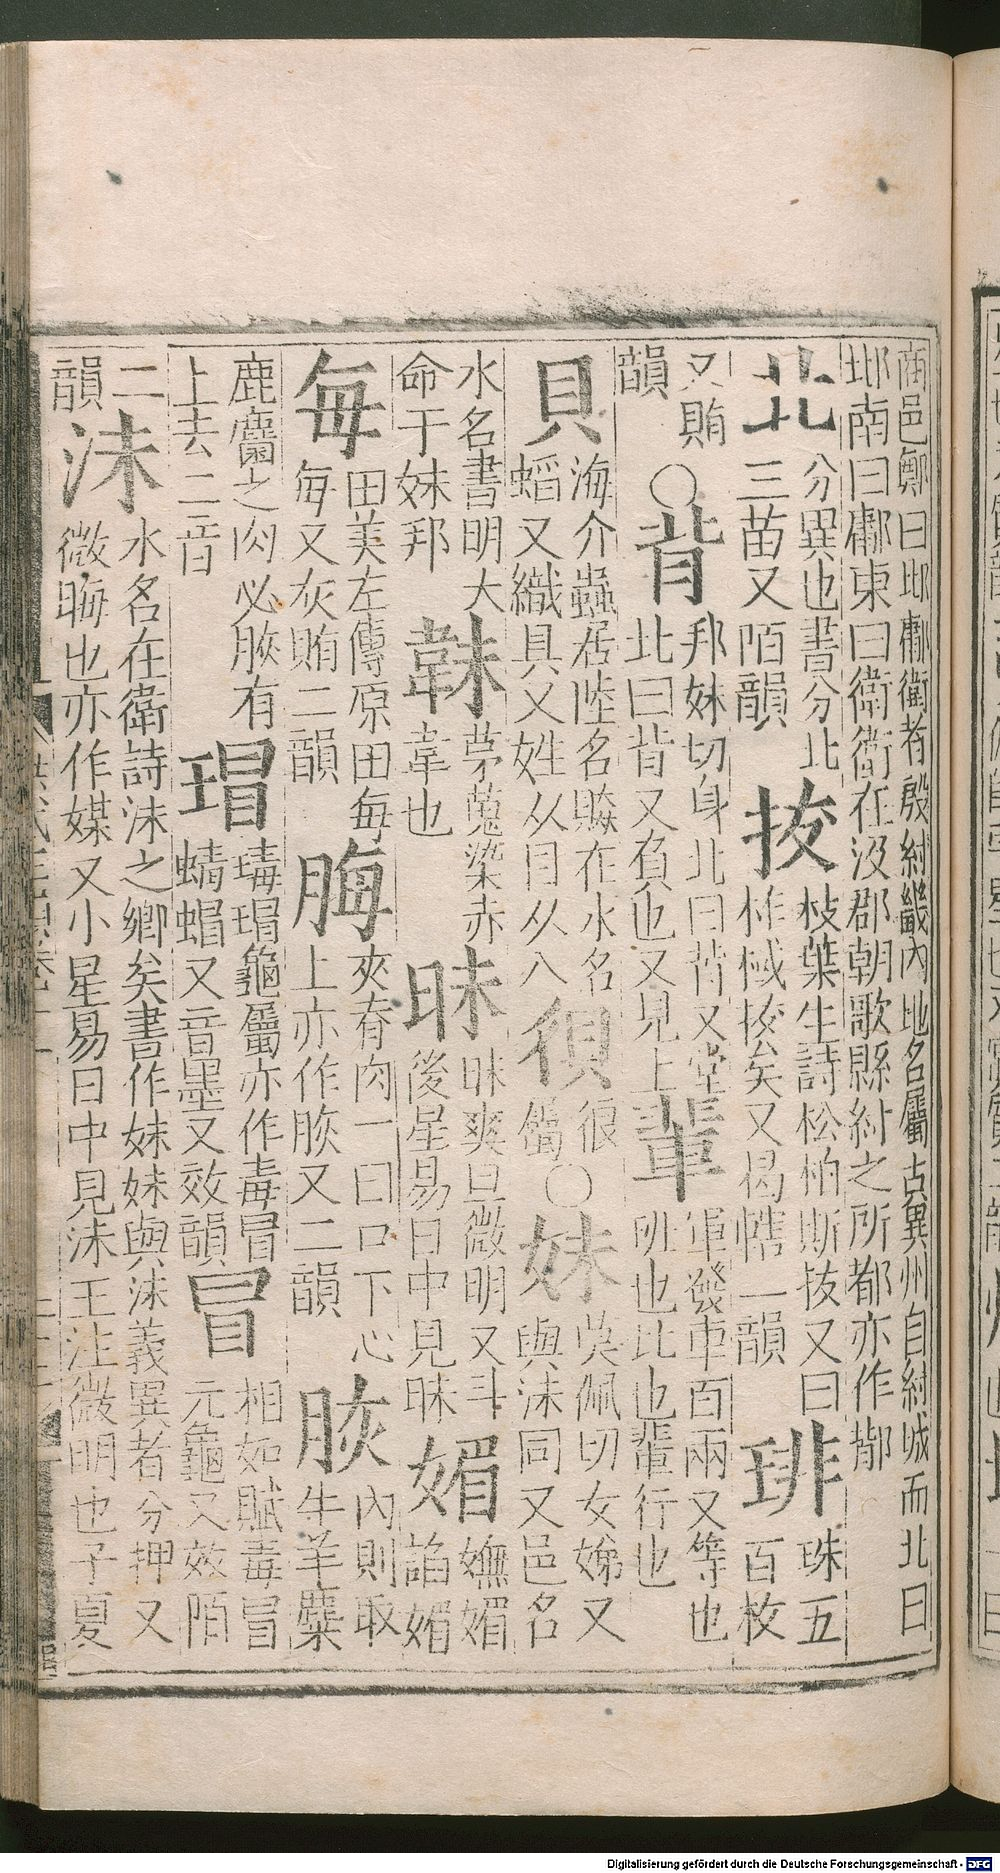 商邑鄭曰邶鄘衛者殷紂畿內地名屬古冀州自紂城而北曰
邶南曰鄘東曰衛衛在汲郡朝歌縣紂之所都亦作鄁
北 分異也書分北
三苗又陌韻
㧞 枝葉生詩松柏斯㧞又曰
柞棫㧞矣又曷轄一韻
琲 珠五
百枚
又賄
韻
〇背 邦妹切身北曰背又堂
北曰背又負也又見上
輩 軍發車百兩又等也
班也比也輩行也
貝 海介蟲居陸名贆在水名
蜬又織具又姓从目从八
狽 很
屬
〇妹 莫佩切女娣又
與沬同又邑名
水名書明大
命于妹邦
韎 茅蒐染赤
韋也
昧 昧爽旦微明又斗
後星易日中見昧
媚 嫵媚
諂媚
每 田美左傳原田每
每又灰賄二韻
脢 夾脊肉一曰口下心
上亦作脄又二韻
脄 內則取
牛羊麋
鹿麕之肉必脄有
上去二音
瑁 瑇瑁龜屬亦作毒冒
蝳蝐又音墨又效韻
冒 相如賦毒冒
元龜又效陌
二
韻
沬 水名在衛詩沬之鄉矣書作妹妹與沬義異者分押又
微晦也亦作媒又小星易日中見沬王注微明也子夏
Digitalisierung gefördert durch die Deutsche Forschungsgemeinschaft - DFG